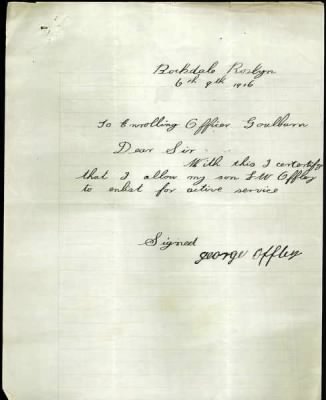 Rochdale Roslyn
6th 9th 1916
To Enrolling Officer Goulburn
Dear Sir
With this I certertify
that I allow my son F.W Offley
to enlist for active service
Signed
george Offley